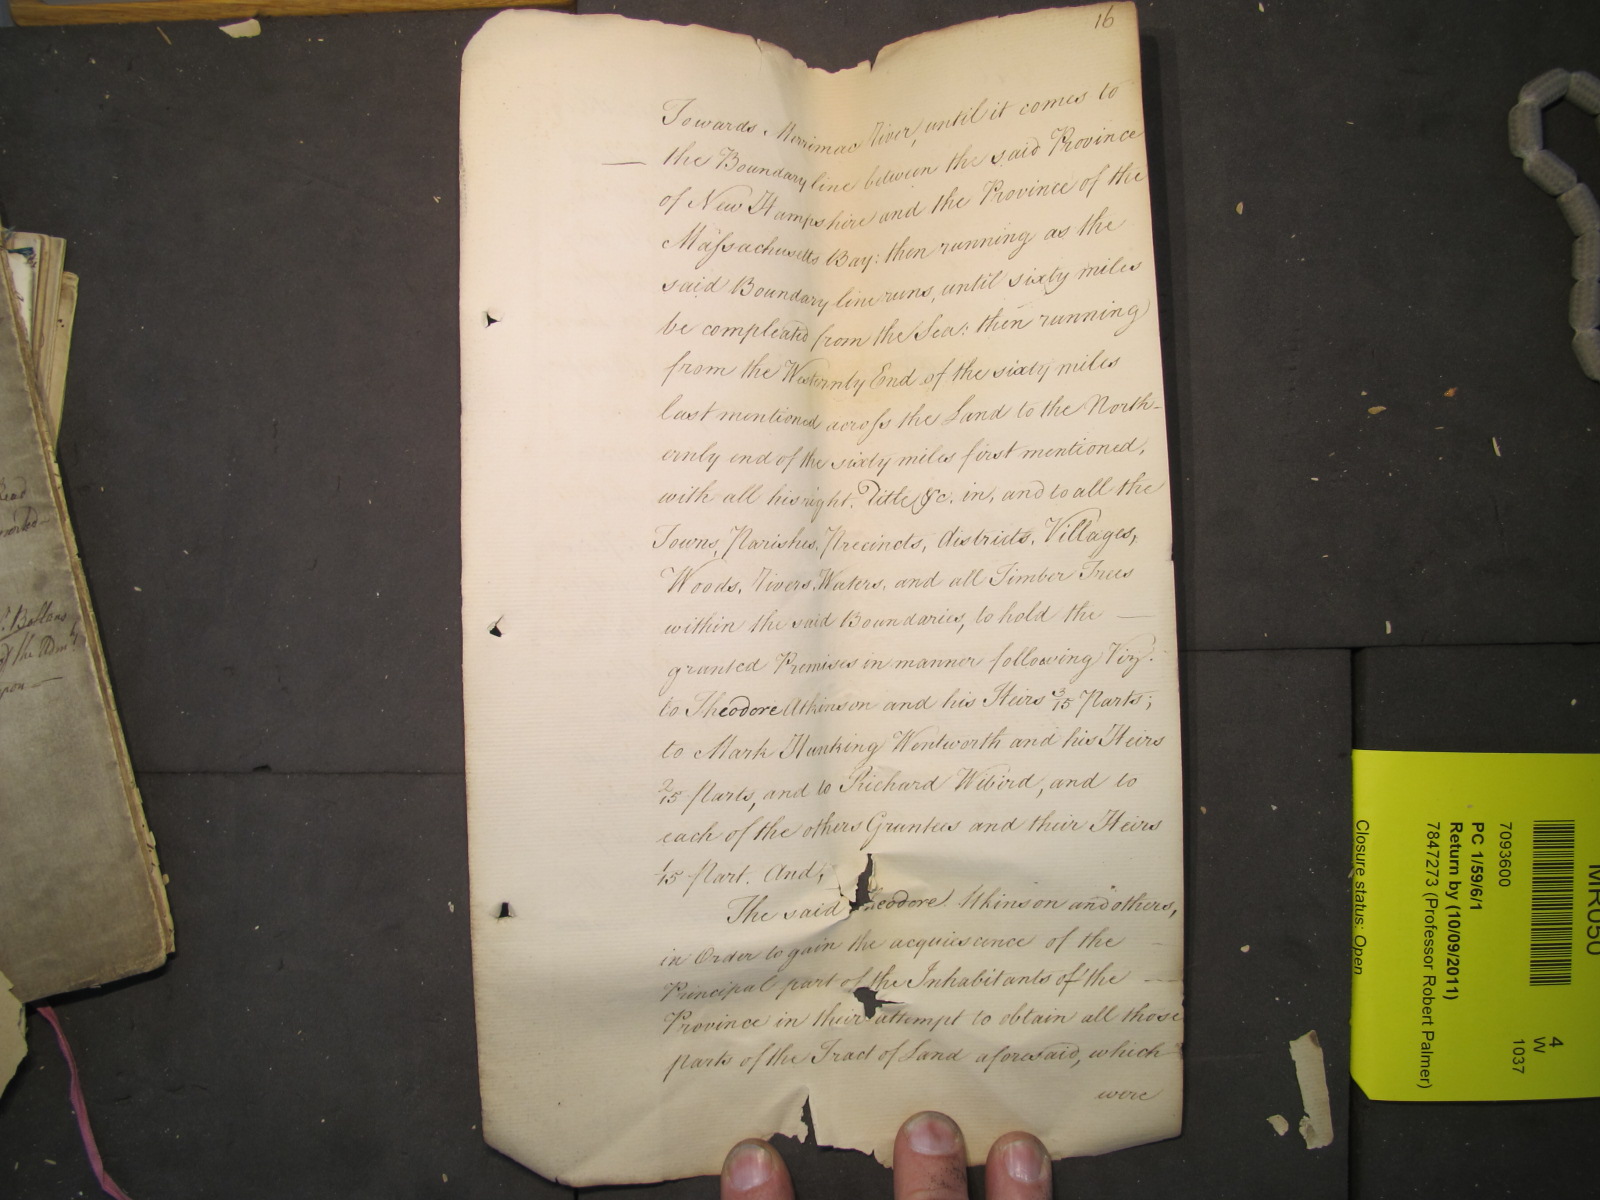 16
Towards Merrimac River, until it comes to
the Boundary line between the said Province
of New Hampshire and the Province of the
Massachusetts Bay: then running as the
said Boundary line runs, until sixty miles
be compleated from the Sea: then running
from the Westernly End of the sixty miles
last mentioned across the Land to the North-
ernly end of the sixty miles first mentioned,
with all his right, Title &c. in, and to all the
Towns, Parishes, Precincts, districts, Villages,
Woods, Rivers, Waters, and all Timber Trees
within the said Boundaries, to hold the —
granted Premises in manner following Viz.
to Theodore Atkinson and his Heirs 3/15 Parts;
to Mark Hunking Wentworth and his Heirs
2/15 Parts, and to Richard Wibird, and to
each of the others Grantees and their Heirs
1/15 Part. And,
The said Theodore Atkinson and others,
in Order to gain the acquiescence of the —
Principal part of the Inhabitants of the —
Province in their attempt to obtain all those
parts of the Tract of Land aforesaid, which
were
upon —
MR050
4
W
1037
7093600
PC 1/59/6/1
Return by (10/09/2011)
7847273 (Professor Robert Palmer)
Closure status: Open